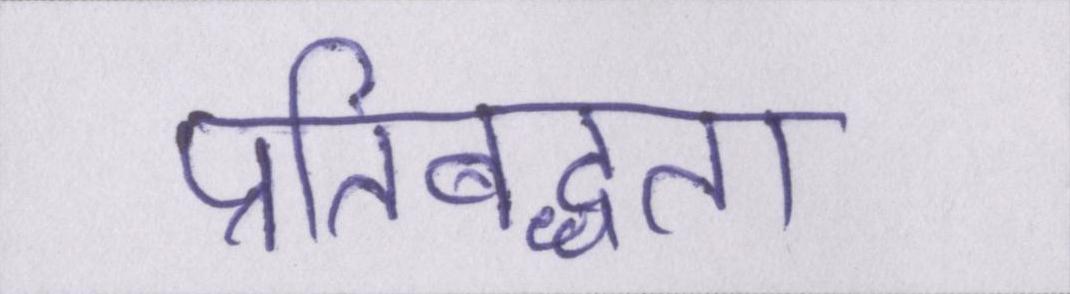 प्रतिबद्धता